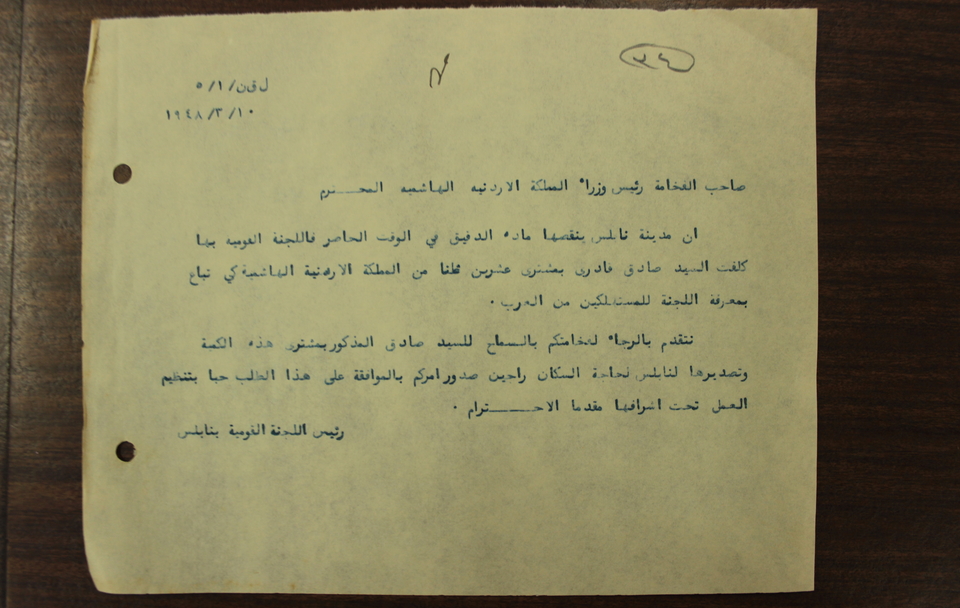 ٣٤
ل ق ن/١/٥
١٩٤٨/٣/١٠
صاحب الفخامة رئيس وزراء المملكة الاردنيه الهاشميه المحـــترم
ان مدينة نابلس ينقصها ماده الدقيق في الوقت الحاضر فاللجنة القوميه بها
كلفت السيد صادق قادرى بمشترى عشرين طنا من المملكة الاردنية الهاشمية كي تباع
بمعرفة اللجنة للمستهلكين من العرب .
نتقدم بالرجاء لفخامتكم بالسماح للسيد صادق المذكور بمشترى هذه الكمية
وتصديرها لنابلس لحاجة السكان راجين صدور امركم بالموافقة على هذا الطلب حبا بتنظيم
العمل تحت اشرافها مقدما الاحـــترام .
رئيس اللجنة القومية بنابلس